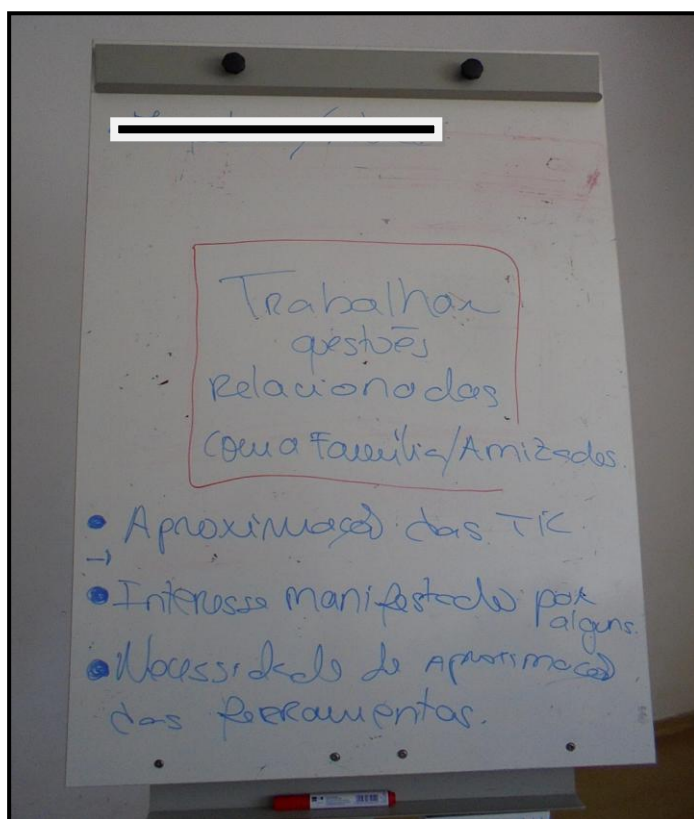 Trabalhar
questões
Relacionadas
com a Família/Amizades.
• Aproximação das TIC
→
• Interesse manifestado por
alguns.
• Necessidade de Aproximação
das ferramentas.